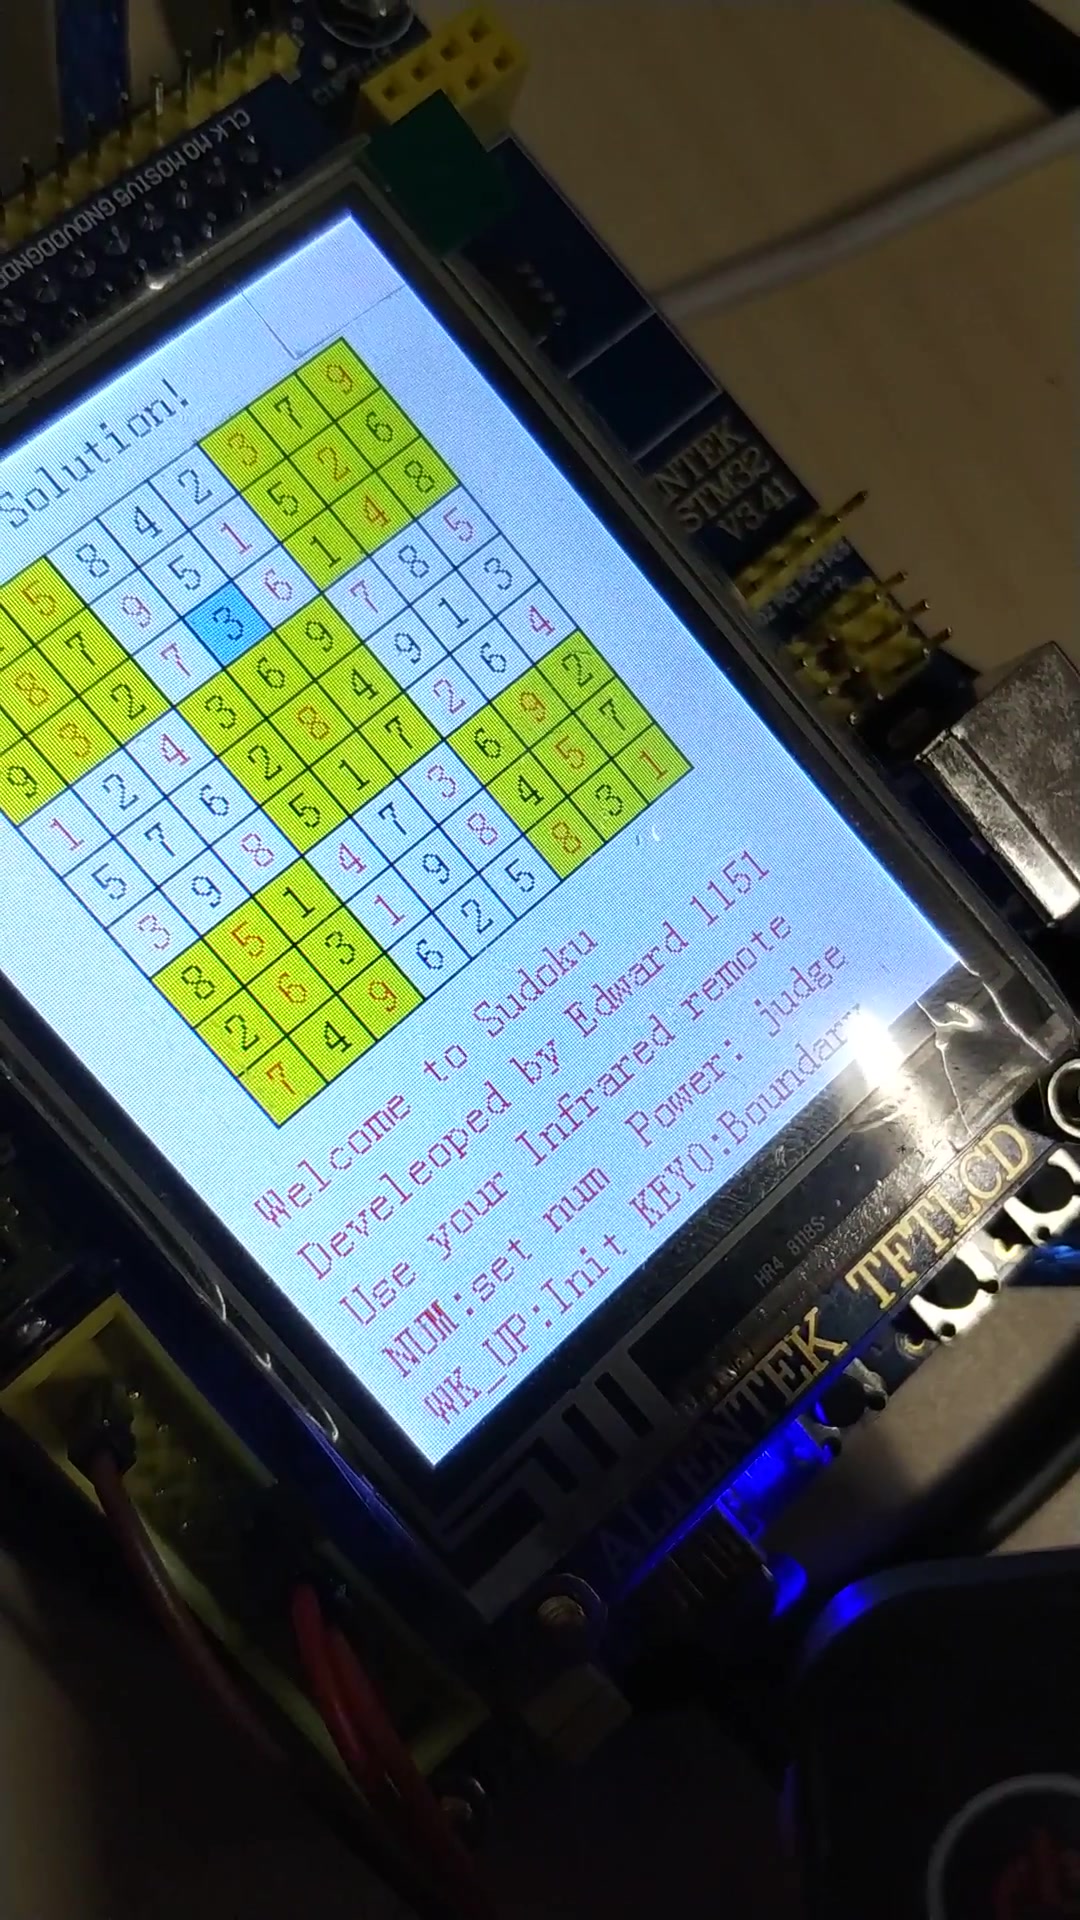 Solution!
5 8 4 2 3 7 9
8 7 9 5 1 5 2 6
9 3 2 7 3 6 1 4 8
1 2 4 3 6 9 7 8 5
5 7 6 2 8 4 9 1 3
3 9 8 5 1 7 2 6 4
8 5 1 4 7 3 6 9 2
2 6 3 1 9 8 4 5 7
7 4 9 6 2 5 8 3 1
Welcome to Sudoku
Develeoped by Edward 1151
Use your Infrared remote
NUM:set num Power: judge
WK_UP:Init KEY0:Boundary
NTEK
STM32
V3.41
HR4 8118S
ALIENTEK TFTLCD